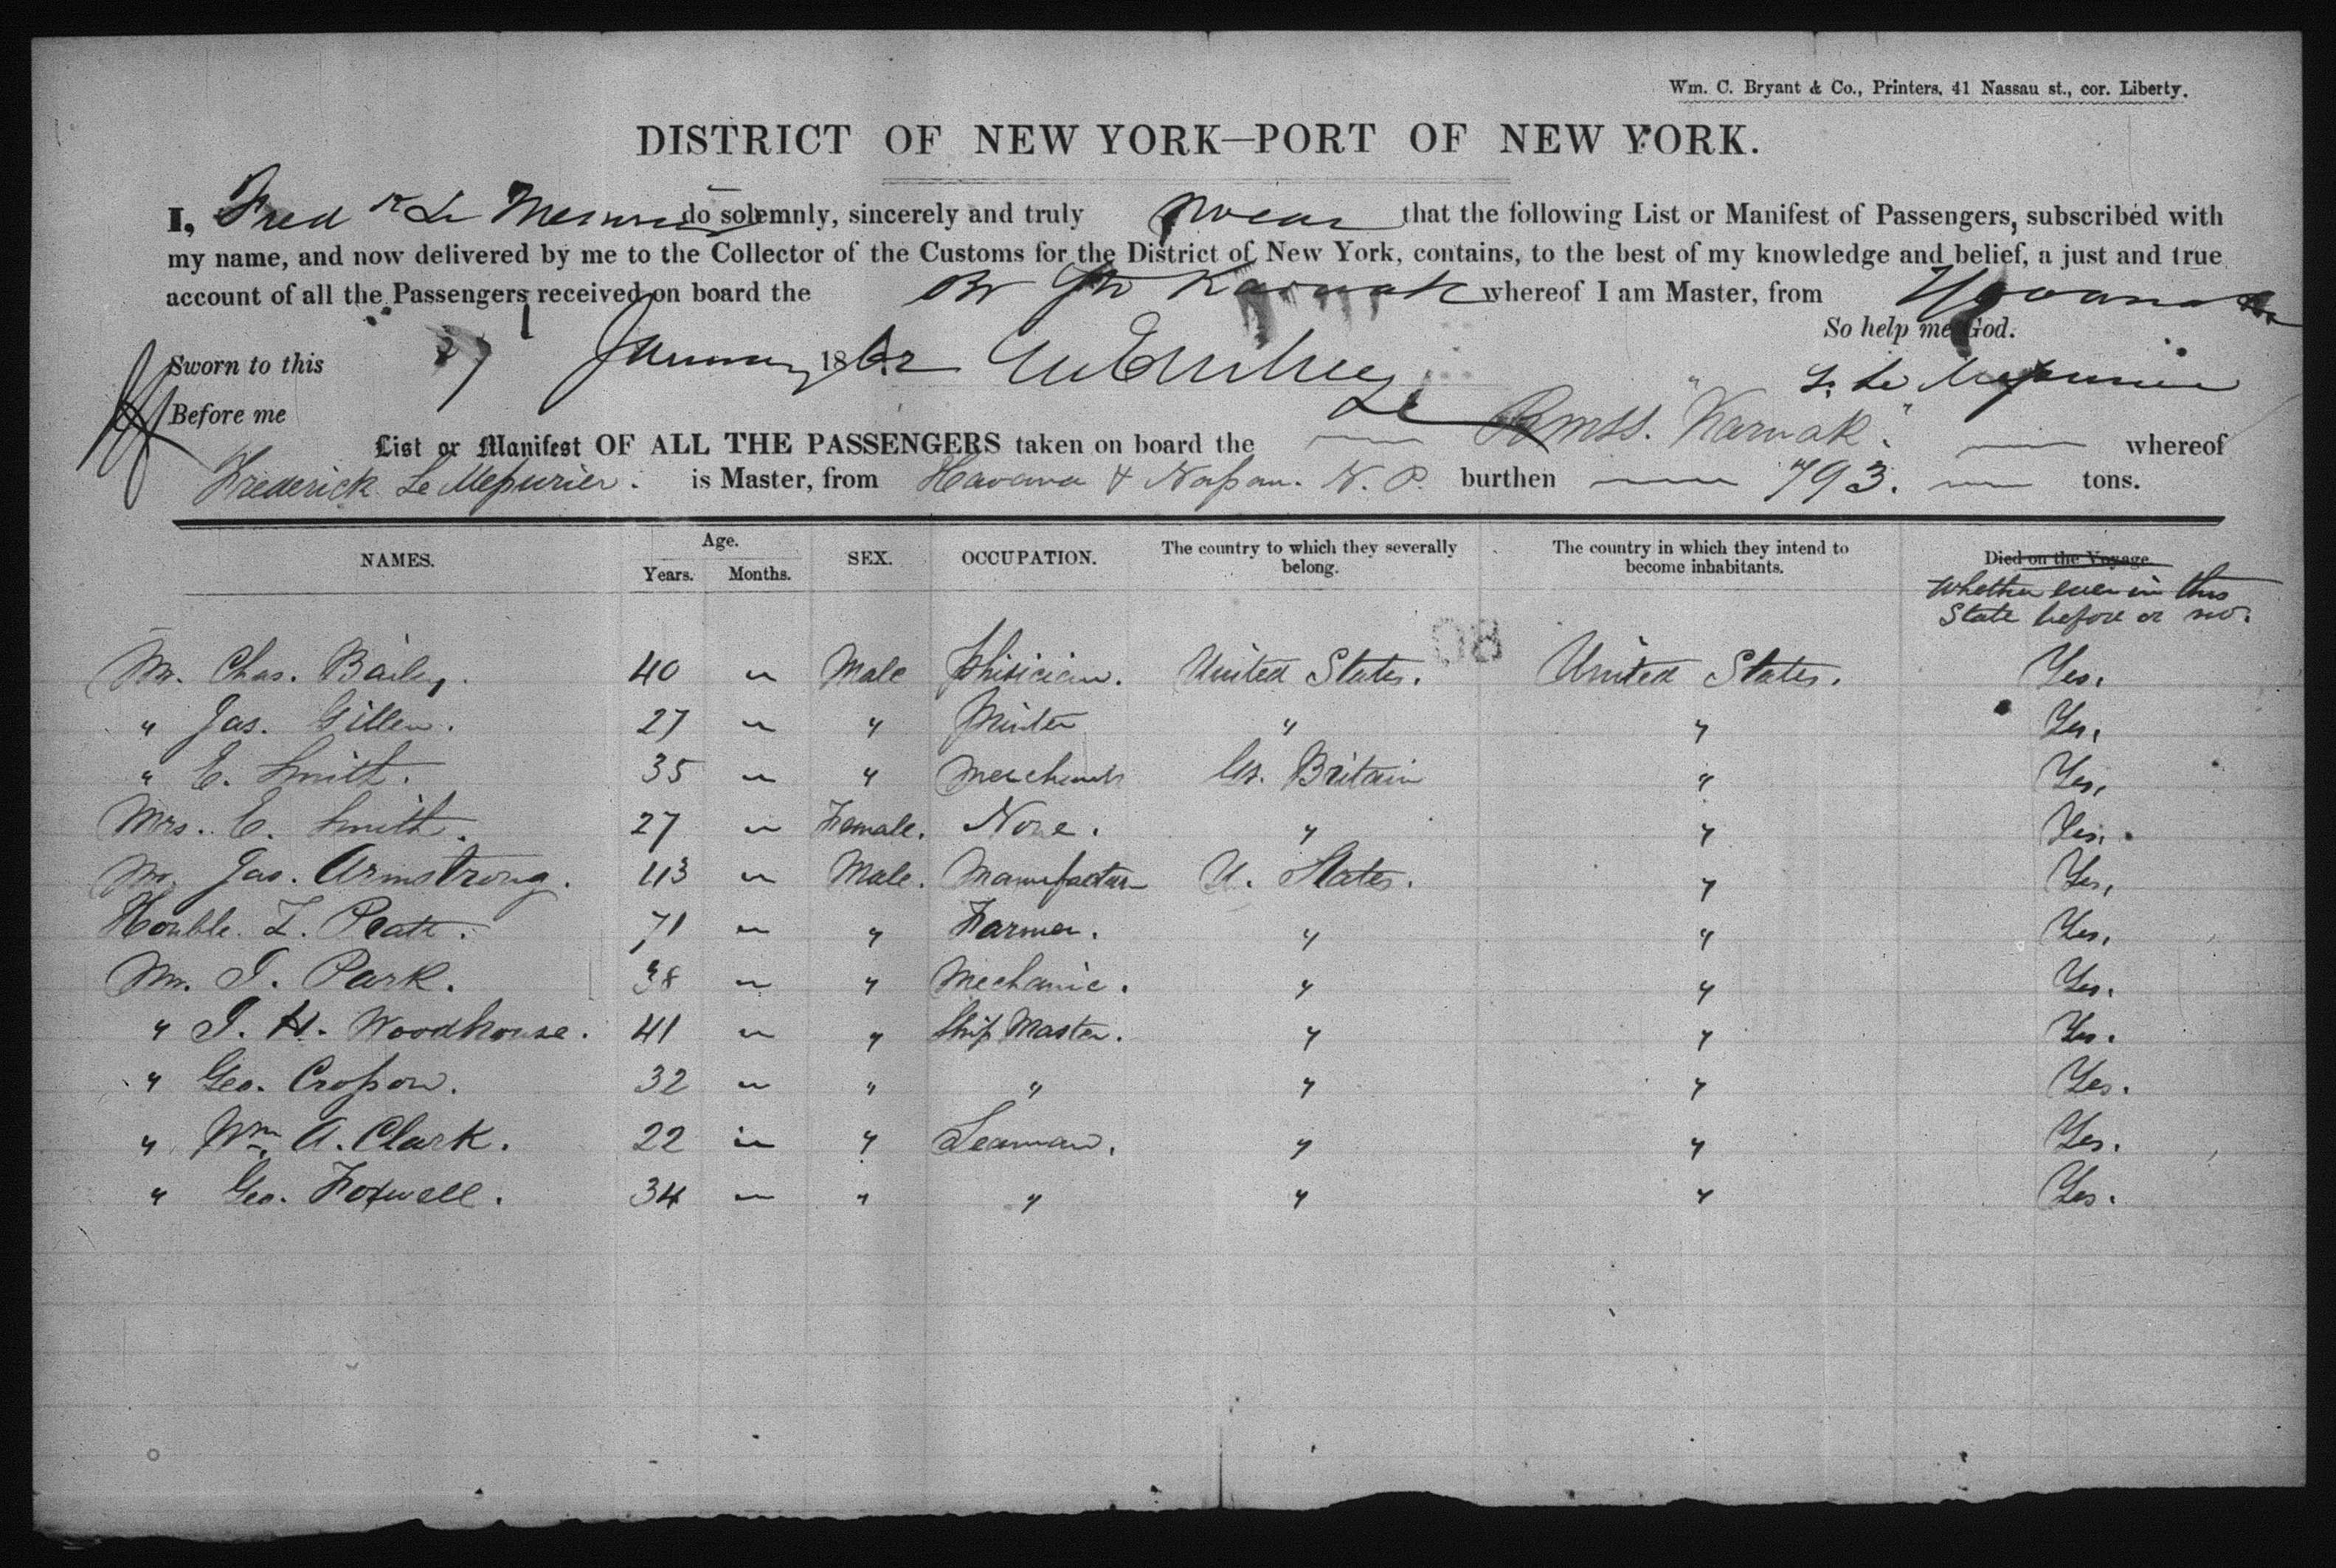 Wm. C. Bryant & Co., Printers, 41 Nassau st., cor. Liberty.
DISTRICT OF NEW YORK—PORT OF NEW YORK.
I, Fredk Le Mesurier do solemnly, sincerely and truly swear that the following List or Manifest of Passengers, subscribed with
my name, and now delivered by me to the Collector of the Customs for the District of New York, contains, to the best of my knowledge and belief, a just and true
account of all the Passengers received on board the Br Str Karnak whereof I am Master, from Havana
So help me God.
Sworn to this 27 January 1862
Le Mesurier
Before me
List or Manifest OF ALL THE PASSENGERS taken on board the RMSS. "Karnak". whereof
Frederick Le Mesurier. is Master, from Havana & Nassau. N. P. burthen 793. tons.
NAMES. Age. Years. Months. SEX. OCCUPATION. The country to which they severally belong. The country in which they intend to become inhabitants. Died on the Voyage.
Whether ever in this
State before or no.
80
Mr. Chas. Bailey. 40 " Male Phisician. United States. United States. Yes.
" Jas. Gillen. 27 " " Printer " " Yes.
" E. Smith. 35 " " Merchant Gt. Britain " Yes.
Mrs. E. Smith. 27 " Female. None. " " Yes.
Mr. Jas. Armstrong. 43 " Male. Manufactur U. States. " Yes.
Honble. Z. Platt. 71 " " Farmer. " " Yes.
Mr. J. Park. 38 " " Mechanic. " " Yes.
" J. H. Woodhouse. 41 " " Ship Master. " " Yes.
" Geo. Crosson. 32 " " " " " Yes.
" Wm. A. Clark. 22 " " Seaman. " " Yes.
" Geo. Foxwell. 34 " " " " " Yes.